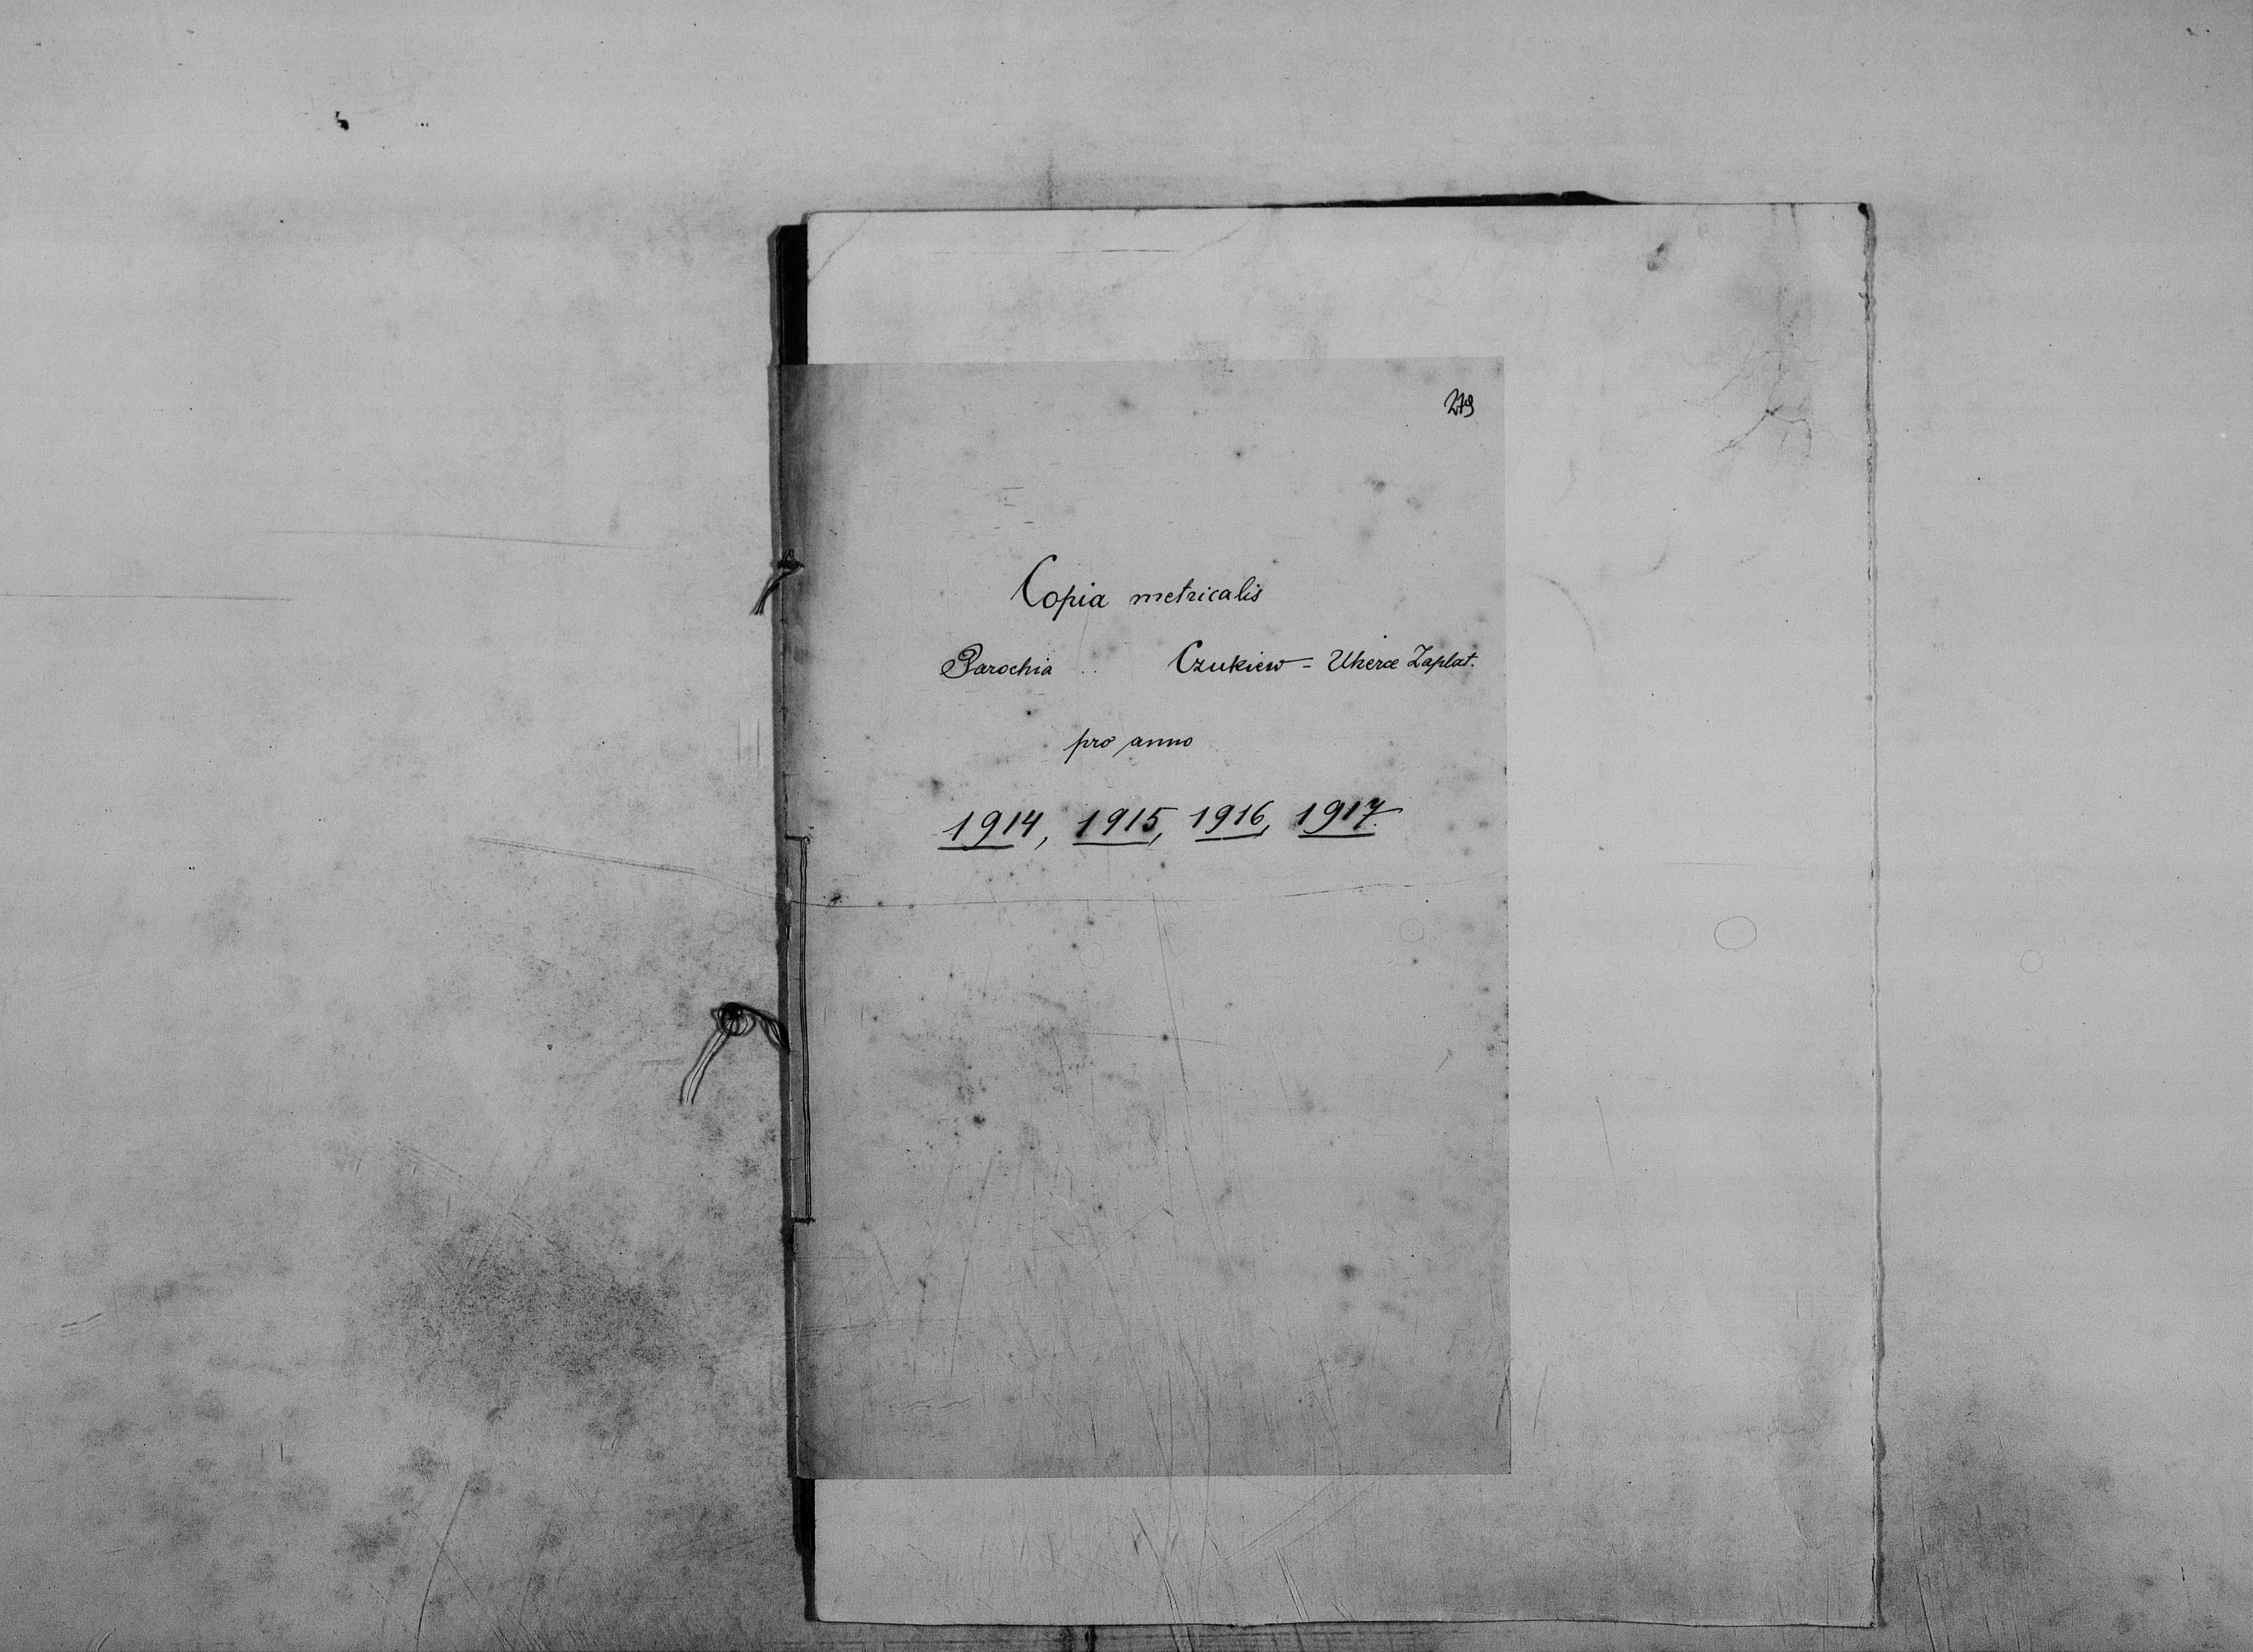 279
Copia metricalis
Parochia .. Czukiew = Uherce Zaplat.
pro anno
1914, 1915, 1916, 1917.